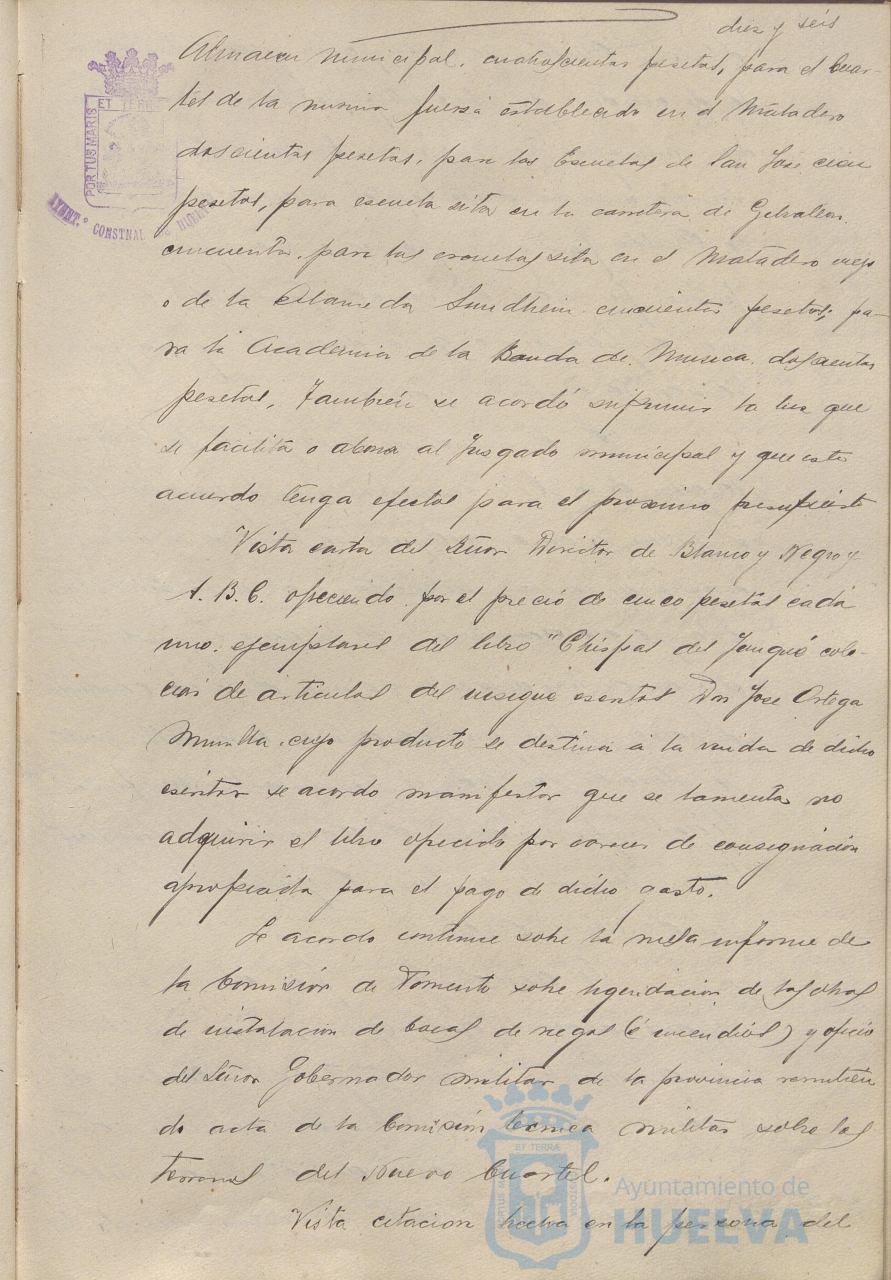 diez y seis
Almacen municipal. cuatrocientas pesetas, para el Cuar-
tel de la misma fuerza establecido en el Matadero
doscientas pesetas, para las Escuelas de San José cien
pesetas, para escuela sita en la carretera de Gibraleon
cincuenta. para las escuelas sita en el Matadero viejo
o de la Alameda Sundheim cincuentas pesetas, pa-
ra la Academia de la Banda de Musica. doscientas
pesetas, Tambien se acordó suprimir la luz que
se facilita o abona al Juzgado municipal y que este
acuerdo tenga efectos para el proximo presupuesto
Vista carta del Señor Director de Blanco y Negro y
A. B. C. ofreciendo por el precio de cinco pesetas cada
uno. ejemplares del libro "Chispas del Yunque colec-
cion de articulos del insigne escritor Don Jose Ortega
Munilla. cuyo producto se destina a la viuda de dicho
escritor se acordo manifestar que se lamenta no
adquirir el libro ofrecido por carecer de consignación
apropiada para el pago d dicho gasto.
Se acordo continue sobre la mesa informe de
la Comisión de Fomento sobre liquidacion de las obras
de instalacion de bocas de riegos (é incendios) y oficio
del Señor Gobernador militar de la provincia remitien
do acta de la Comisión tecnica militar sobre los
terrenos del Nuevo Cuartel.
Vista citacion hecha en la persona del
PORTUS MARIS
ET TERRÆ
AYUNT.º CONSTNAL
ET TERRÆ
Ayuntamiento de
HUELVA